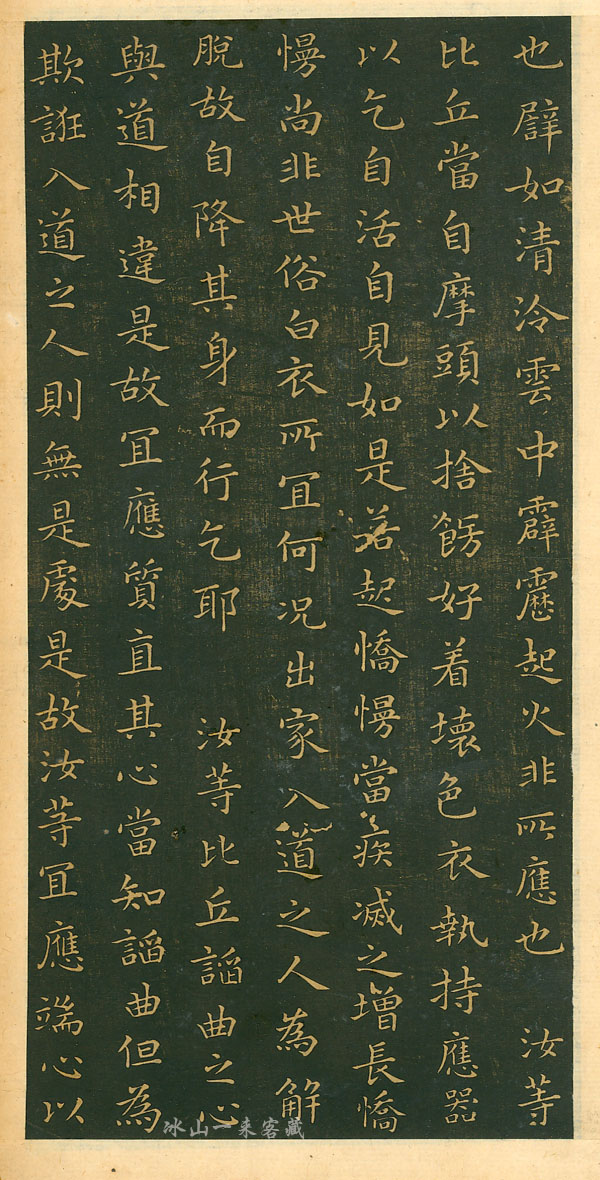 也譬如清冷雲中霹靂起火非所應也 汝等
比丘當自摩頭以捨餝好着壞色衣執持應器
以乞自活自見如是若起憍慢當疾滅之增長憍
慢尚非世俗白衣所宜何况出家入道之人為解
脫故自降其身而行乞耶 汝等比丘謟曲之心
與道相違是故宜應質直其心當知謟曲但為
欺誑入道之人則無是處是故汝等宜應端心以
冰山一来客藏